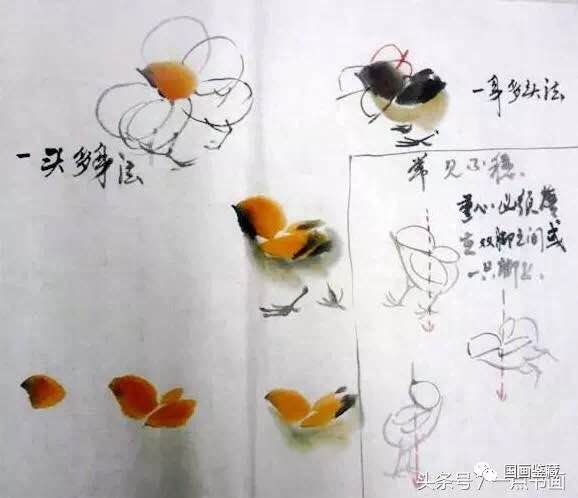 一身多头法
一头多身法
常见不稳
重心必须落
在双脚之间或
一只脚上
国画鉴藏
头条号/一点书画